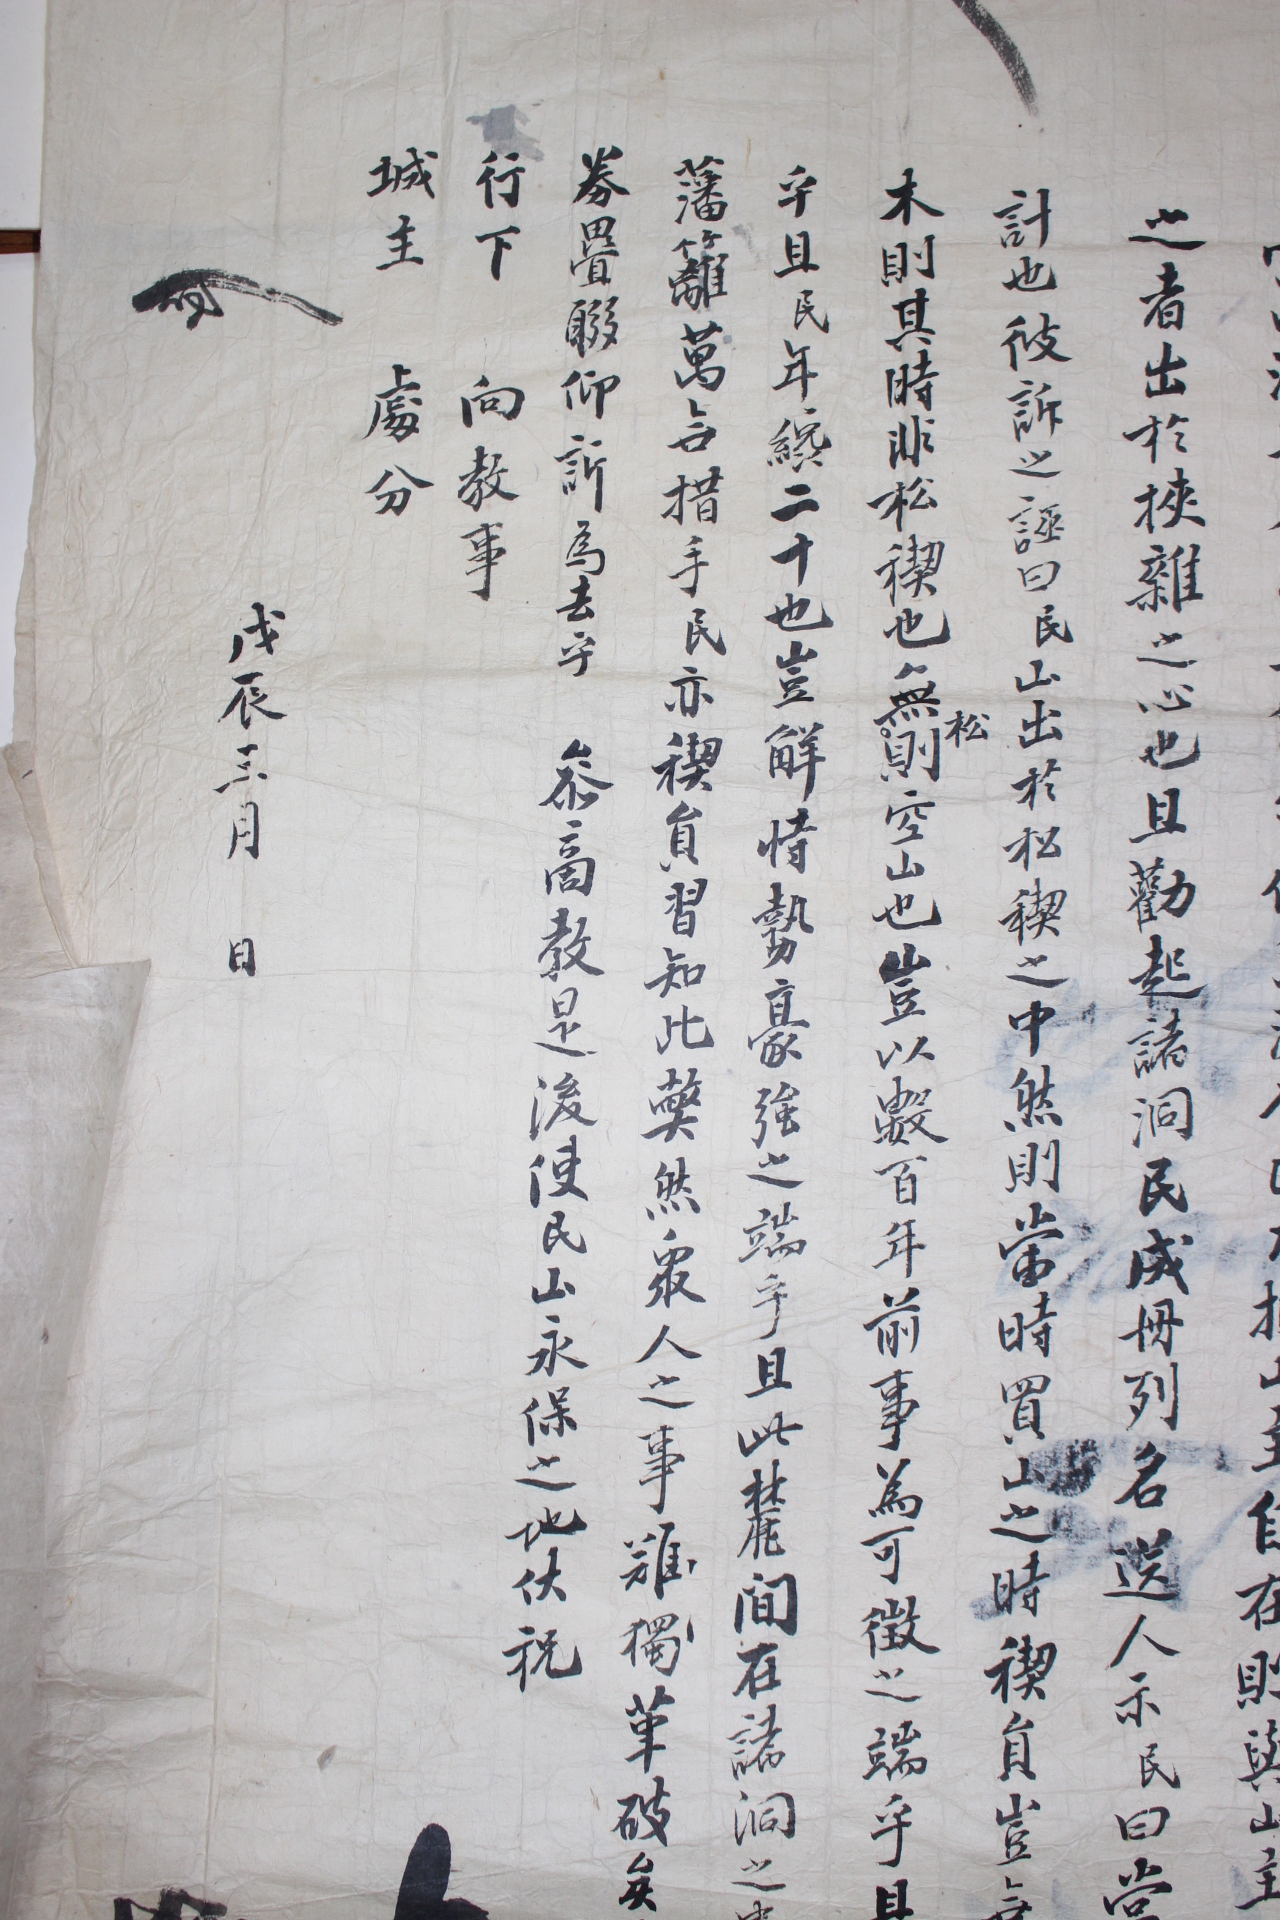 在則與山主
之者出於挾雜之心也且勸起諸洞民成冊列名送人示民曰當
計也彼訴之誣曰民山出於松稧之中然則當時買山之時稧員豈無
木則其時非松稧也無松則空山也豈以數百年前事為可徵之端乎且
乎且民年纔二十也豈解恃勢豪強之端乎且此麓間在諸洞之
藩籬萬無措手民亦稧員習知此弊然衆人之事難獨革破矣
券疊聯仰訴為去乎 叅商教是後使民山永保之地伏祝
行下 向教事
城主 處分
戊辰三月 日